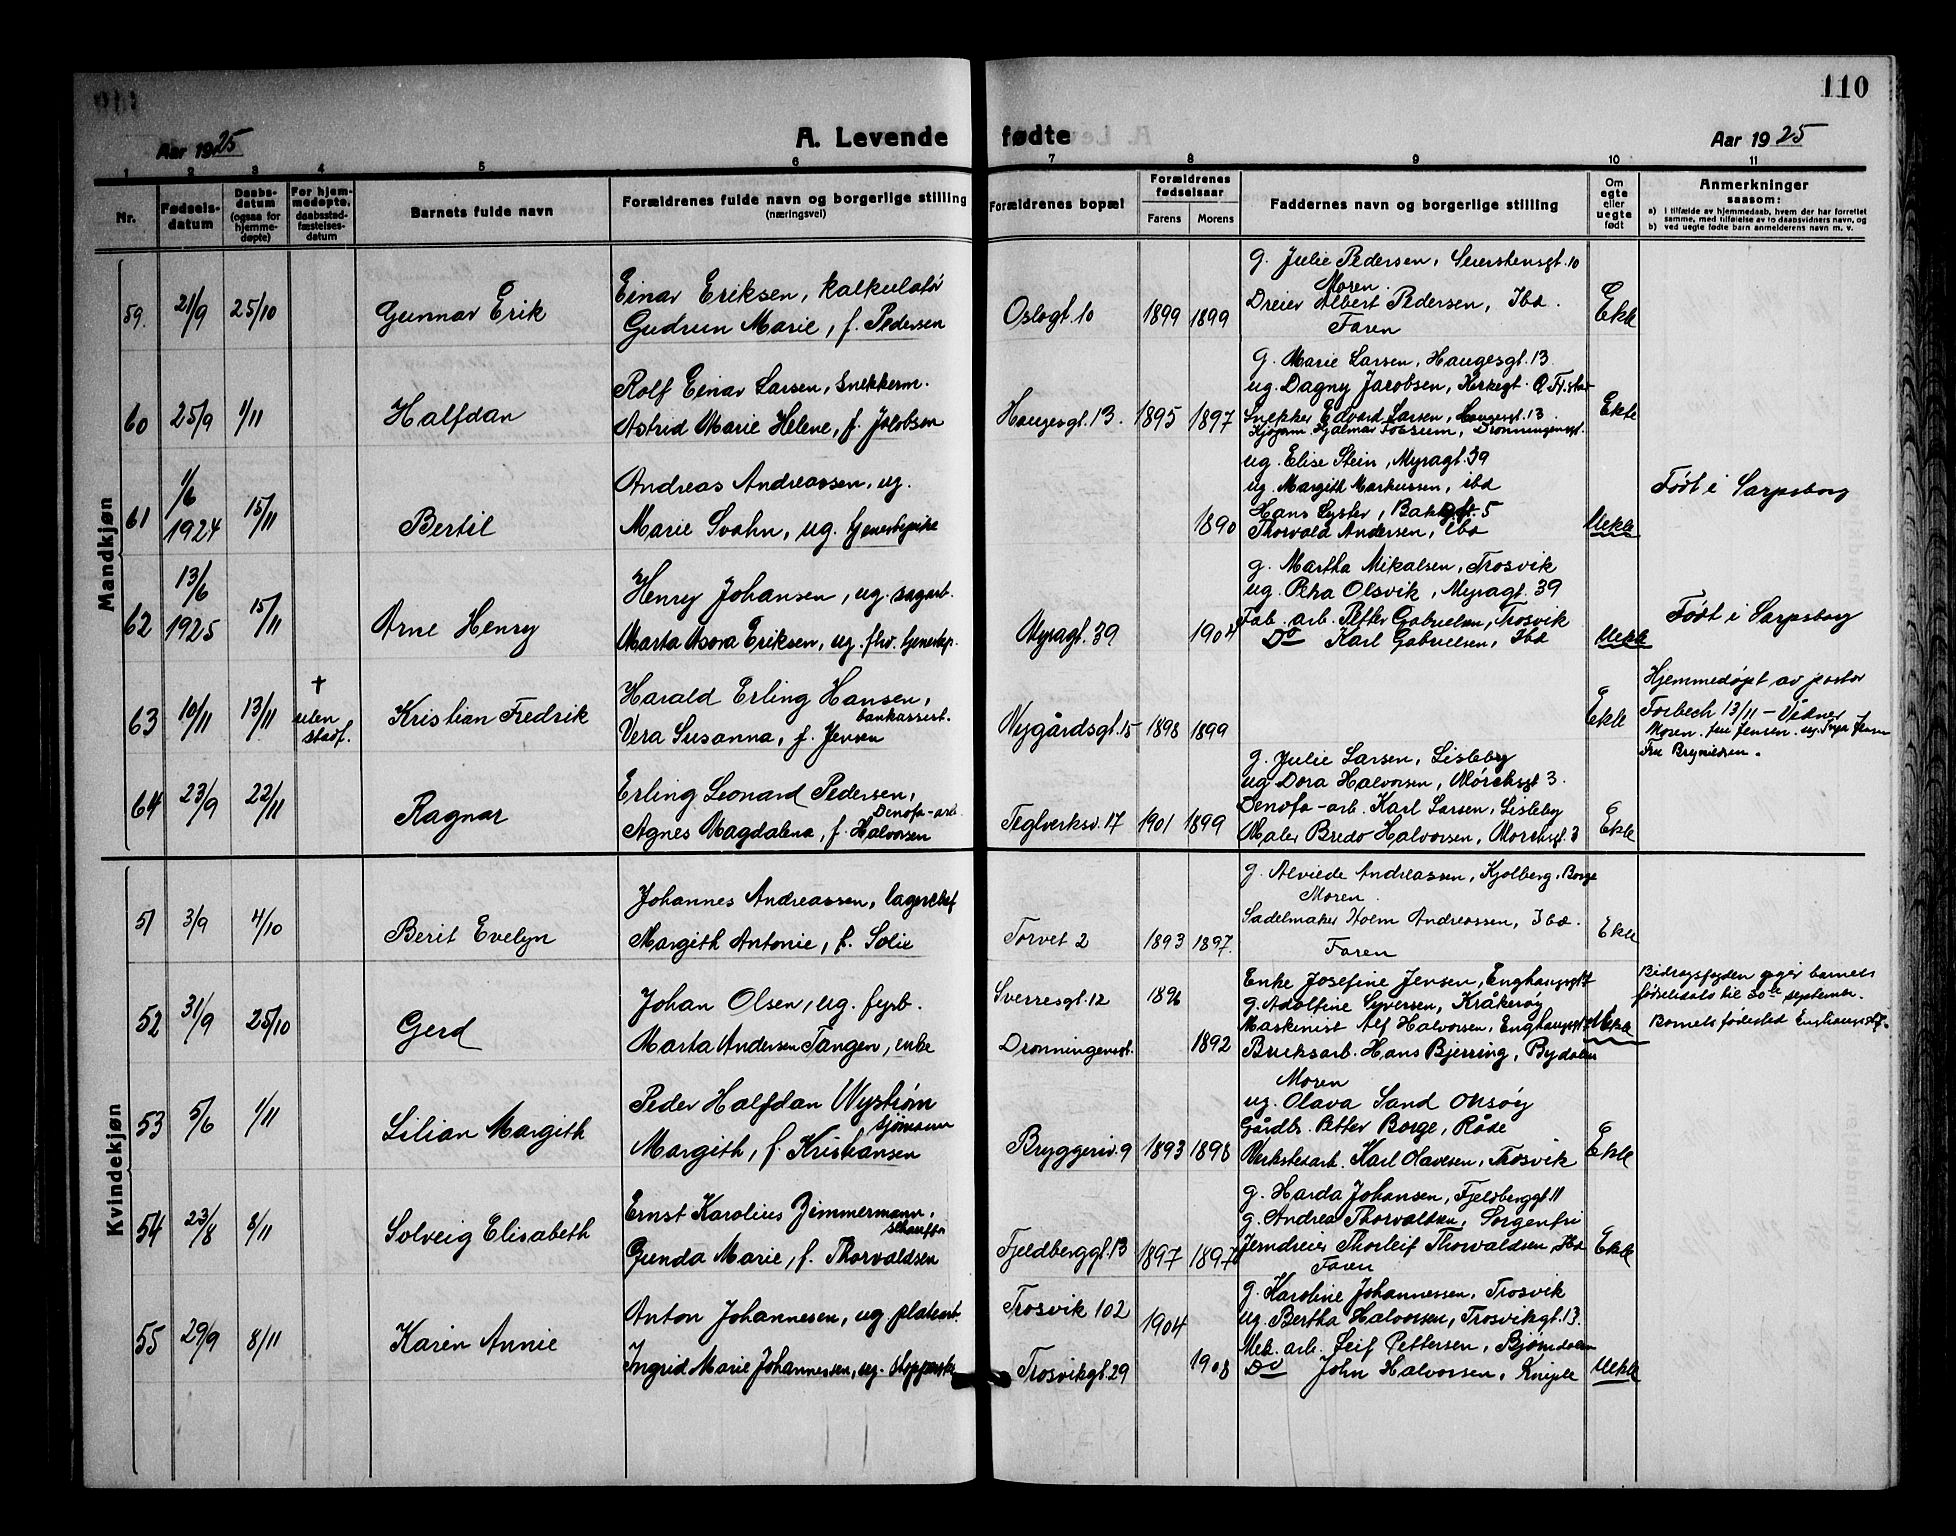 110
Aar 1925
A. Levende fødte
Aar 1925
1 2 3 4 5 6 7 8 9 10 11
Nr.
Fødsels-
datum
Daabs-
datum
(ogsaa for
hjemme-
døpte)
For hjem-
medøpte,
daabsstad-
fæstelses-
datum
Barnets fulde navn
Forældrenes fulde navn og borgerlige stilling
(næringsvei)
Forældrenes bopæl
Forældrenes
fødselsaar
Farens Morens
Faddernes navn og borgerlige stilling
Om
egte
eller
uegte
født
Anmerkninger
saasom:
a) i tilfælde av hjemmedaab, hvem der har forrettet
samme, med tilføielse av to daabsvidners navn, og
b) ved uegte fødte barn anmelderens navn m. v.
Mandkjøn
59. 21/9 25/10 Gunnar Erik
Einar Eriksen, kalkulatør
Gudrun Marie, f. Pedersen
Oslogt. 10 1899 1899
g. Julie Pedersen, Seierstensgt. 10
Moren.
Dreier Albert Pedersen, Ibd.
Faren
Ekte
60 25/9 1/11 Halfdan
Rolf Einar Larsen, snekkerm.
Astrid Marie Helene, f. Jacobsen
Haugesgt. 13. 1895 1897
g. Marie Larsen, Haugesgt. 13
ug. Dagny Jacobsen, Kirkegt.
Snekker Edvard Larsen, Haugesgt. 13.
Hjalmar Fossum, Dronningensgt.
Ekte
61 1/6 1924 15/11 Bertil
Andreas Andreassen, ug.
Marie Svahn, ug.
1890
ug. Elise Stein, Myragt. 39
ug. Margith Markussen, ibd
Hans Lyster, 5
Thorvald Andersen, ibd
Uekte
Født i Sarpsborg
62 13/6 1925 15/11 Arne Henry
Henry Johansen, ug. sagarb.
Marta Asora Eriksen, ug. fhv.
Myragt. 39 1904
g. Martha Mikalsen, Trosvik
ug. Petra Olsvik, Myragt. 39
Fab. arb. Petter Gabrielsen, Trosvik
Do Karl Gabrielsen, Ibd
Uekte
Født i Sarpsborg
63 10/11 13/11 † uten
stadf.
Kristian Fredrik
Harald Erling Hansen,
bankassist.
Vera Susanna, f. Jensen
Nygårdsgt. 15 1898 1899
Ekte
Hjemmedøpt av pastor
Forbech 13/11 – Vidner
Moren. fru Jensen. ug.
Fru Brynildsen.
64 23/9 22/11 Ragnar
Erling Leonard Pedersen,
Denofa-arb.
Agnes Magdalena, f. Halvorsen
Teglverksv. 17 1901 1899
g. Julie Larsen, Lisleby
ug Dora Halvorsen, Mørchsgt 3.
Denofa-arb. Karl Larsen, Lisleby
Maler Bredo Halvorsen, Mørchsgt. 3
Ekte
Kvindekjøn
51 3/9 4/10 Berit Evelyn
Johannes Andreassen, lagerchef
Margith Antonie, f. Solie
Torvet 2 1893 1897.
g. Alviede Andreassen, Kjølberg, Borge
Moren.
Sadelmaker Holm Andreassen, Ibd.
Faren
Ekte
52 31/9 25/10 Gerd
Johan Olsen, ug. fyrb.
Marta Andersen Tangen, enke
Sverresgt. 12 1896
Dronningensgt. 1892
Enke Josefine Jensen, Enghaugsgt
g. Adolfine Syversen, Kråkerøy
Maskinist Alf Halvorsen, Enghaugsgt
Bruksarb. Hans Bjerring, Bydalen
Uekte
Bidragsfogden opgir barnets
fødselsdato til 30te septemer.
Barnets fødested Enghaugsgt 7.
53 5/6 1/11 Lilian Margith
Peder Halfdan Nystrøm
sjømann
Margith, f. Kristiansen
Bryggeriv. 9 1893 1898
Moren
ug. Olava Sand Onsøy
Gårdbr. Petter Borge, Råde
Verkstedarb. Karl Olavesen, Trosvik
Ekte
54 23/8 8/11 Solveig Elisabeth
Ernst Karolius Zimmermann,
schauffør
Gunda Marie, f. Thorvaldsen
Fjeldberggt. 13 1897 1897
g. Harda Johansen, Fjeldberggt. 11
g. Andrea Thorvaldsen, Sorgenfri
Jerndreier Thorleif Thorvaldsen, Ibd
Faren
Ekte
55 29/9 8/11 Karin Annie
Anton Johannesen, ug platearb.
Ingrid Marie Johannessen, ug.
Trosvik 102 1904
Trosvikgt. 29 1908
g. Karoline Johannessen, Trosvik
ug. Bertha Halvorsen, Trosvikgt. 13.
Mek. arb. Leif Pettersen, Bjørndalen
Do John Halvorsen, Kniple
Uekte